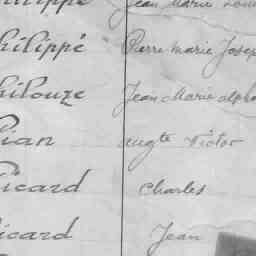 hilippe Jean Marie Louis
hilippé Pierre marie Josep
hilouze Jean Marie alpho
ian augte Victor
icard Charles
icard Jean